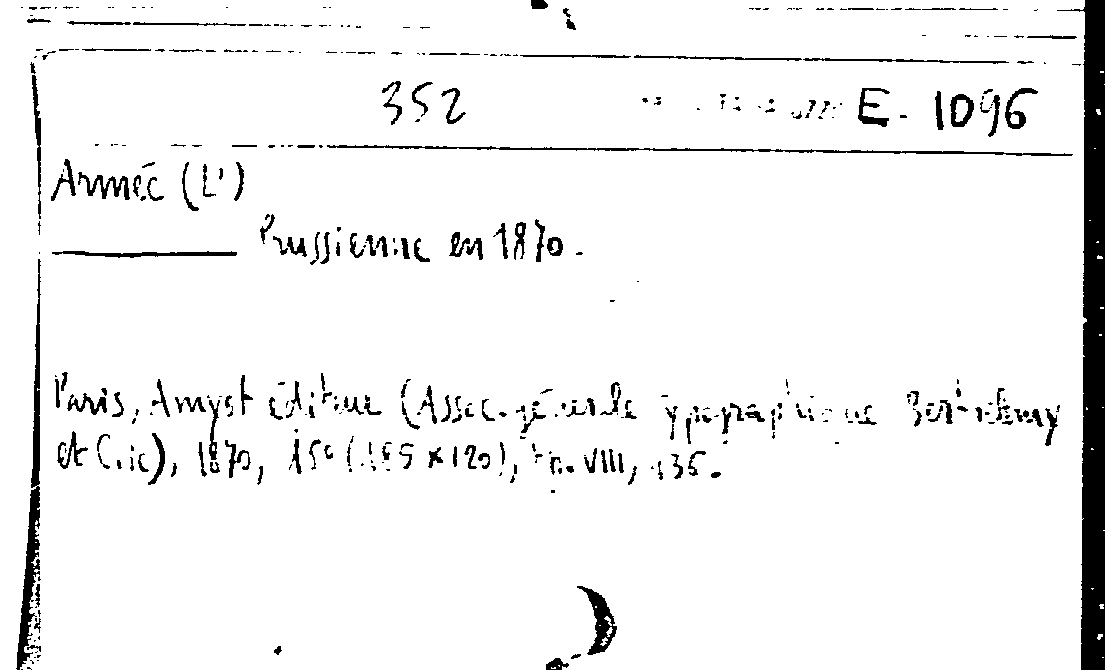 352 E. 1096
Armée (L')
Prussienne en 1870.
Paris, Amyot éditeur (Assoc. générale typographique Berthelemy
et Cie), 1870, (185 x 120), pp. VIII, 136.